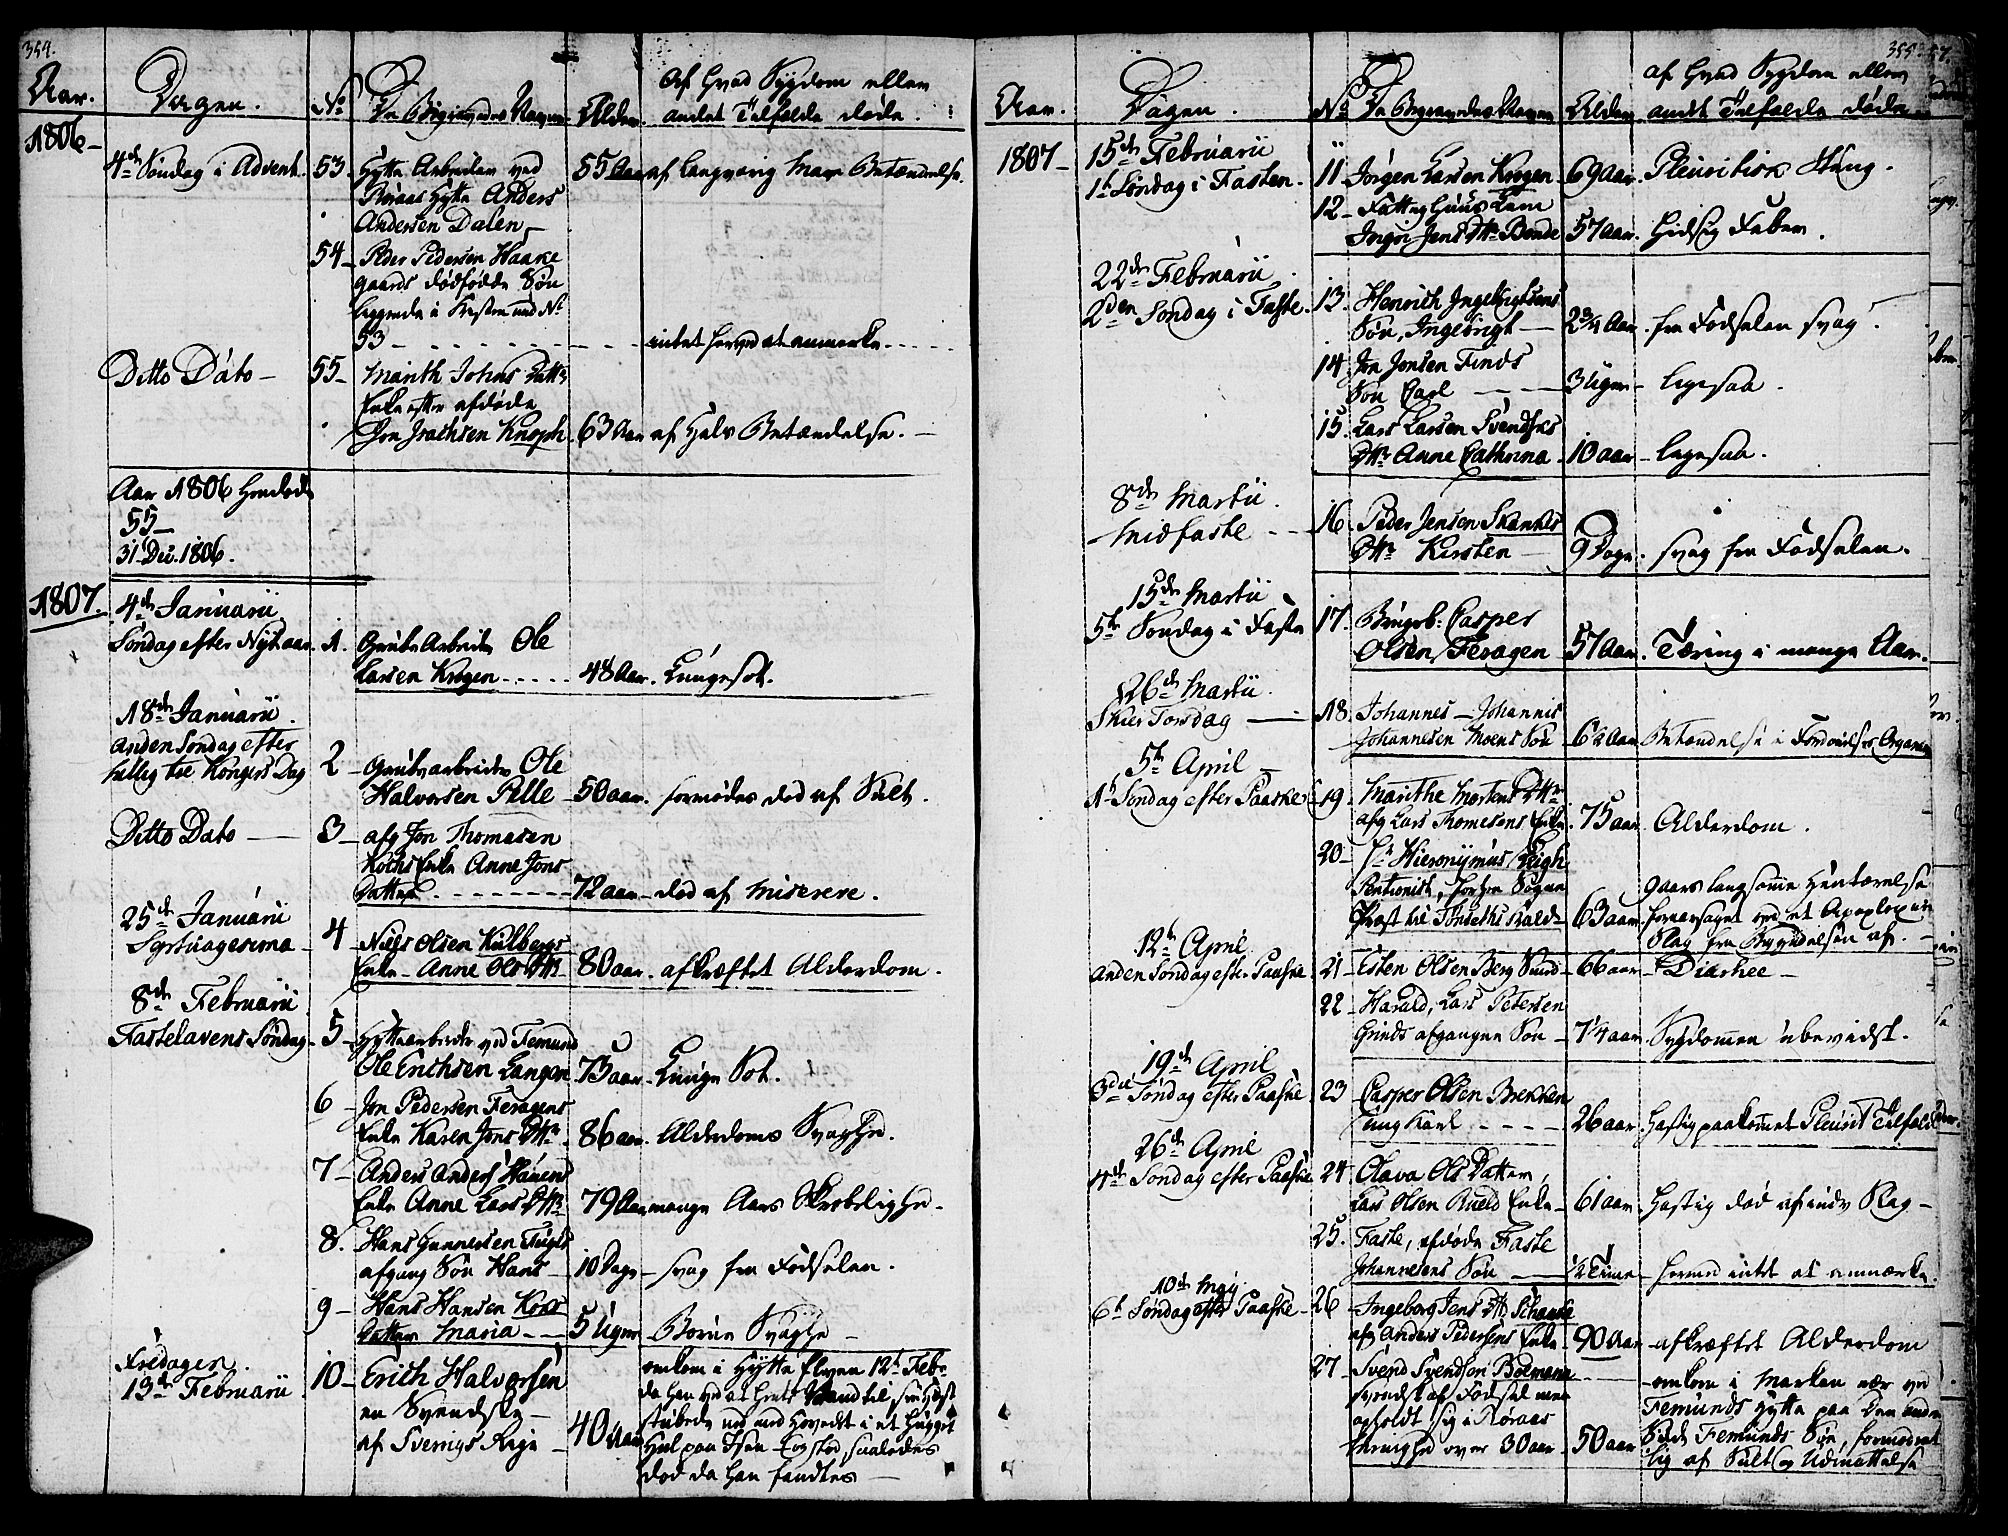 354.
Aar. Dagen. No De Begravedes Navne Alder Af hvad Sygdom eller
andet Tilfælde døde.
1806
4de Søndag i Advent. 53. Hytte Arbeider ved 55 Aar af langvarig Mave Betændelse.
Røraas Hytte Anders
Andersen Dalen
54 Peder Pedersen Haane
gaards dødfødde Søn
liggende i Kisten med No
53 intet herved at anmerke
Ditto Dato 55 Marith Johns Datter
Enke efter afdøde
Jon Joachsen Knoph 63 Aar af Hals Betændelse.
Aar 1806 Hendøde
55
31 Dec. 1806.
1807.
4de Januarii
Søndag efter Nytaar 1. Grube Arbeider Ole
Larsen Krogen 48 Aar. Lungesot.
18de Januarii
Anden Søndag efter
hellig tre Kongers Dag 2 Grubearbeider Ole
Halvorsen Pelle 50 aar. formodes død af Sult.
Ditto Dato 3 afg Jon Thomesen
Kochs Enke Anne Jons
Datter 72 aar død af Miserere.
25de Januarii
Septuagesima 4 Niels Olsen Kulbergs
Enke Anne Ols Dtr 80 aar. afkræftet Alderdom.
8de Februarii
Fastelavens Søndag 5 Hyttearbeider ved Femund
Ole Erichsen Langen 73 aar. Lunge Sot.
6 Jon Pedersen Feragens
Enke Karen Jons Dtr 86 aar. Alderdoms Svaghed.
7 Anders Anders Hauens
Enke Anne Lars Dtr 79 Aar mange Aars Skrøbelighed.
8. Hans Gunnersen
afgang Søn Hans 10 Dage svag fra Fødselen.
9 Hans Hansen Kors
Datter Maria 5 Uger Børne Svaghed
Fredagen
13de Februarii 10 Erich Halvorsen omkom i Hytte Elven 12te Feb.
en Svendske
af Sverrigs Rige 40 Aar
død da han fandtes
355
Aar. Dagen. No De Begravedes Navne Alder af hvad Sygdom eller
andet Tilfælde døde.
1807 15de Februarii
1te Søndag i Fasten. 11 Jørgen Larsen Krogen 69 aar. Pleuritisk Sting.
12 Fattig Huus Lem
Ingri Jens Dtr Bonde 57 aar. hidsig Feber.
22de Februarii
2den Søndag i Faste. 13. Henrich Ingebrigtsens
Søn, Ingebrigt 2¾ Aar fra Fødselen svag.
14. Jon Jonsen Finds
Søn Carl 3 Uger ligesaa.
15. Lars Larsen Svendskes
Dtr Anne Cathrina 10 aar ligesaa.
8de Martii
Midfaste 16. Peder Jensen Skankes
Dtr Kirsten 9 Dage. svag fra Fødselen.
15de Martii
5te Søndag i Faste 17. Bergsb: Casper
Olsen Feragen 57 Aar. Tæring i mange Aar.
26de Martii
Skier Torsdag 18. Johannes Johannis
Johannesen Moens Søn 6½ Aar Betændelse i Fordøielses Organerne
5te April
1te Søndag efter Paaske 19. Marithe Mortens Dtr
afg Lars Thomesens Enke 75 aar. Alderdom.
20 Hr Hieronymus Leigh
Pentionist, forhen Sogne
Præst til Tønsets Kald 63 aar. 9 aars langsomme Hentærelse
foraarsaget ved et Apoplexien
Slag fra Begyndelsen af.
12te April
anden Søndag efter Paaske 21 Esten Olsen Berg Sund 66 aar Diarhee
22 Harald, Lars Petersen
Grinds afgangne Søn 7¼ aar Sygdommen ubevidst.
19de April
3die Søndag efter Paaske 23 Casper Olsen Brekken
Ung Karl 26 aar. hastig paakommet Pleurit Tilfælde
26de April
4de Søndag efter Paaske 24 Olava Ols Datter
Lars Olsen Enke 61 aar. hastig død af indv Slag
25. Faste, afdøde Faste
Johannesens Søn ½ Time hermed intet at anmærke.
10de May
6te Søndag efter Paaske 26 Ingeborg Jens Dtr Schanke
afg Anders Pedersens Enke 90 Aar afkræftet Alderdom
27 Svend Svendsen omkom i Marken nær ved
svensk af Fødsel men Femunds Hytte paa den anden
opholdt sig i Røraas Side Femunds Søe, formodent
Menighed over 30 aar 50 aar lig af Sult og Udmattelse